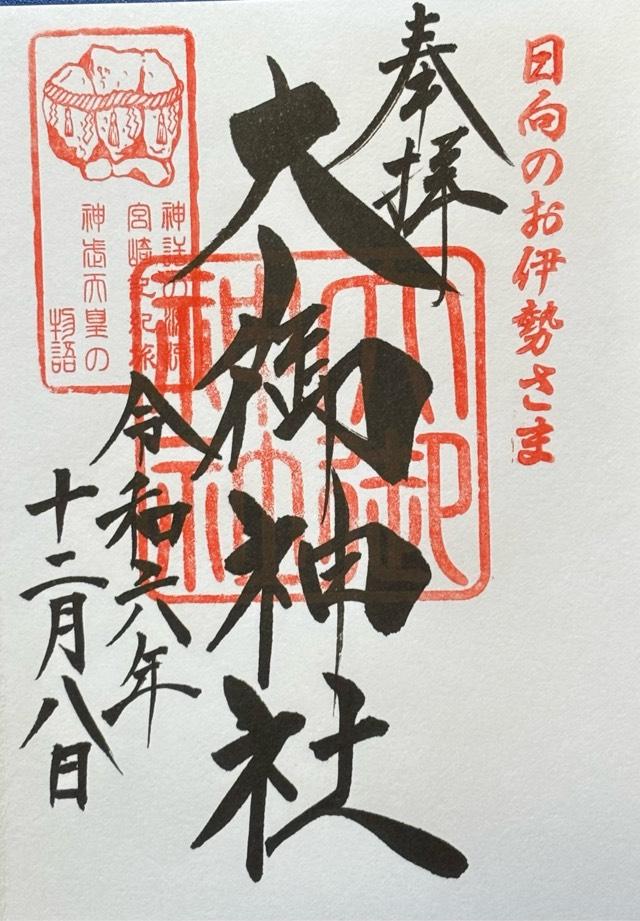 日向のお伊勢さま
奉拝
大御神社
令和六年
十二月八日
神話の源流
宮崎記紀旅
神武天皇の
物語